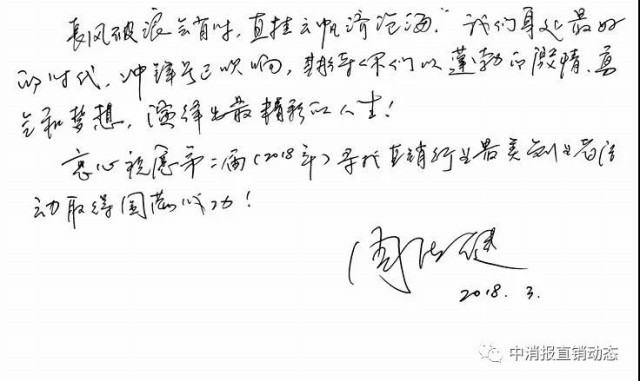 长风破浪会有时,直挂云帆济沧海。”我们身处最好
的时代,冲锋号已吹响,期待你们以蓬勃的激情、真
和梦想,演绎出最精彩的人生!
衷心祝愿第二届(2018年)寻找直销行业最美创业者活
动取得圆满成功!
周
2018.3.
中消报直销动态